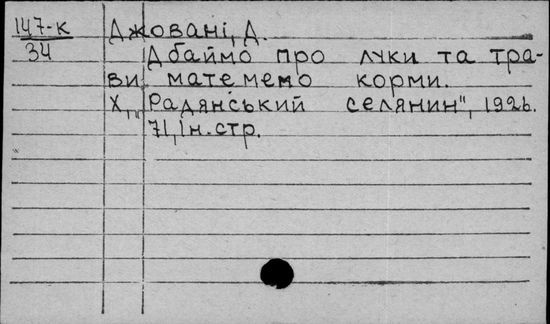 147-к Джовані, Д.
34 Дбаймо про луки та тра-
ви матемемо корми.
Х, „Радянський селянин", 1926.
71, Ін. стр.